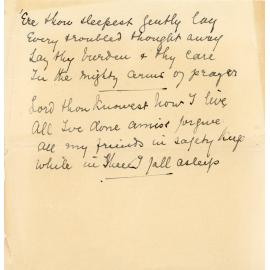 'Ere thou sleepest gently lay
Every troubled thought away
Lay thy burden & thy care
In the mighty arms of prayer
Lord thou knowest how I live
All I've done amiss forgive
All my friends in safety keep
While in Thee I fall asleep